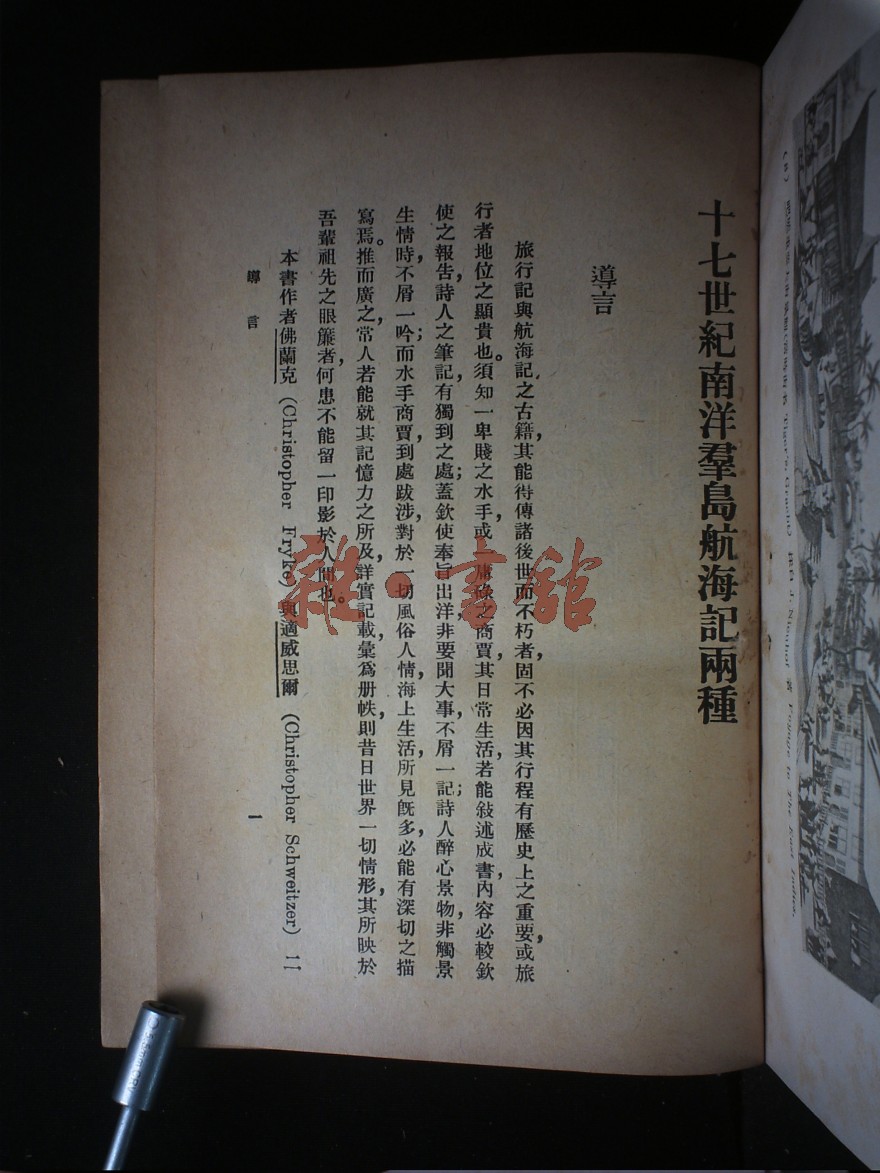 十七世紀南洋羣島航海記兩種
導言
旅行記與航海記之古籍，其能得傳諸後世而不朽者，固不必因其行程有歷史上之重要，或旅
行者地位之顯貴也。須知一卑賤之水手，或一庸碌之商賈，其日常生活，若能敍述成書，內容必較欽
使之報告，詩人之筆記，有獨到之處；蓋欽使奉旨出洋，非要聞大事，不屑一記；詩人醉心景物，非觸景
生情時，不屑一吟；而水手商賈，到處跋涉，對於一切風俗人情，海上生活，所見旣多，必能有深切之描
寫焉。推而廣之，常人若能就其記憶力之所及，詳實記載，彙爲册帙，則昔日世界一切情形，其所映於
吾輩祖先之眼簾者，何患不能留一印影於人間也。
本書作者佛蘭克 (Christopher Fryke) 與適威思爾 (Christopher Schweitzer) 二
導言
一
雜·書館
Voyage to The East Indies.